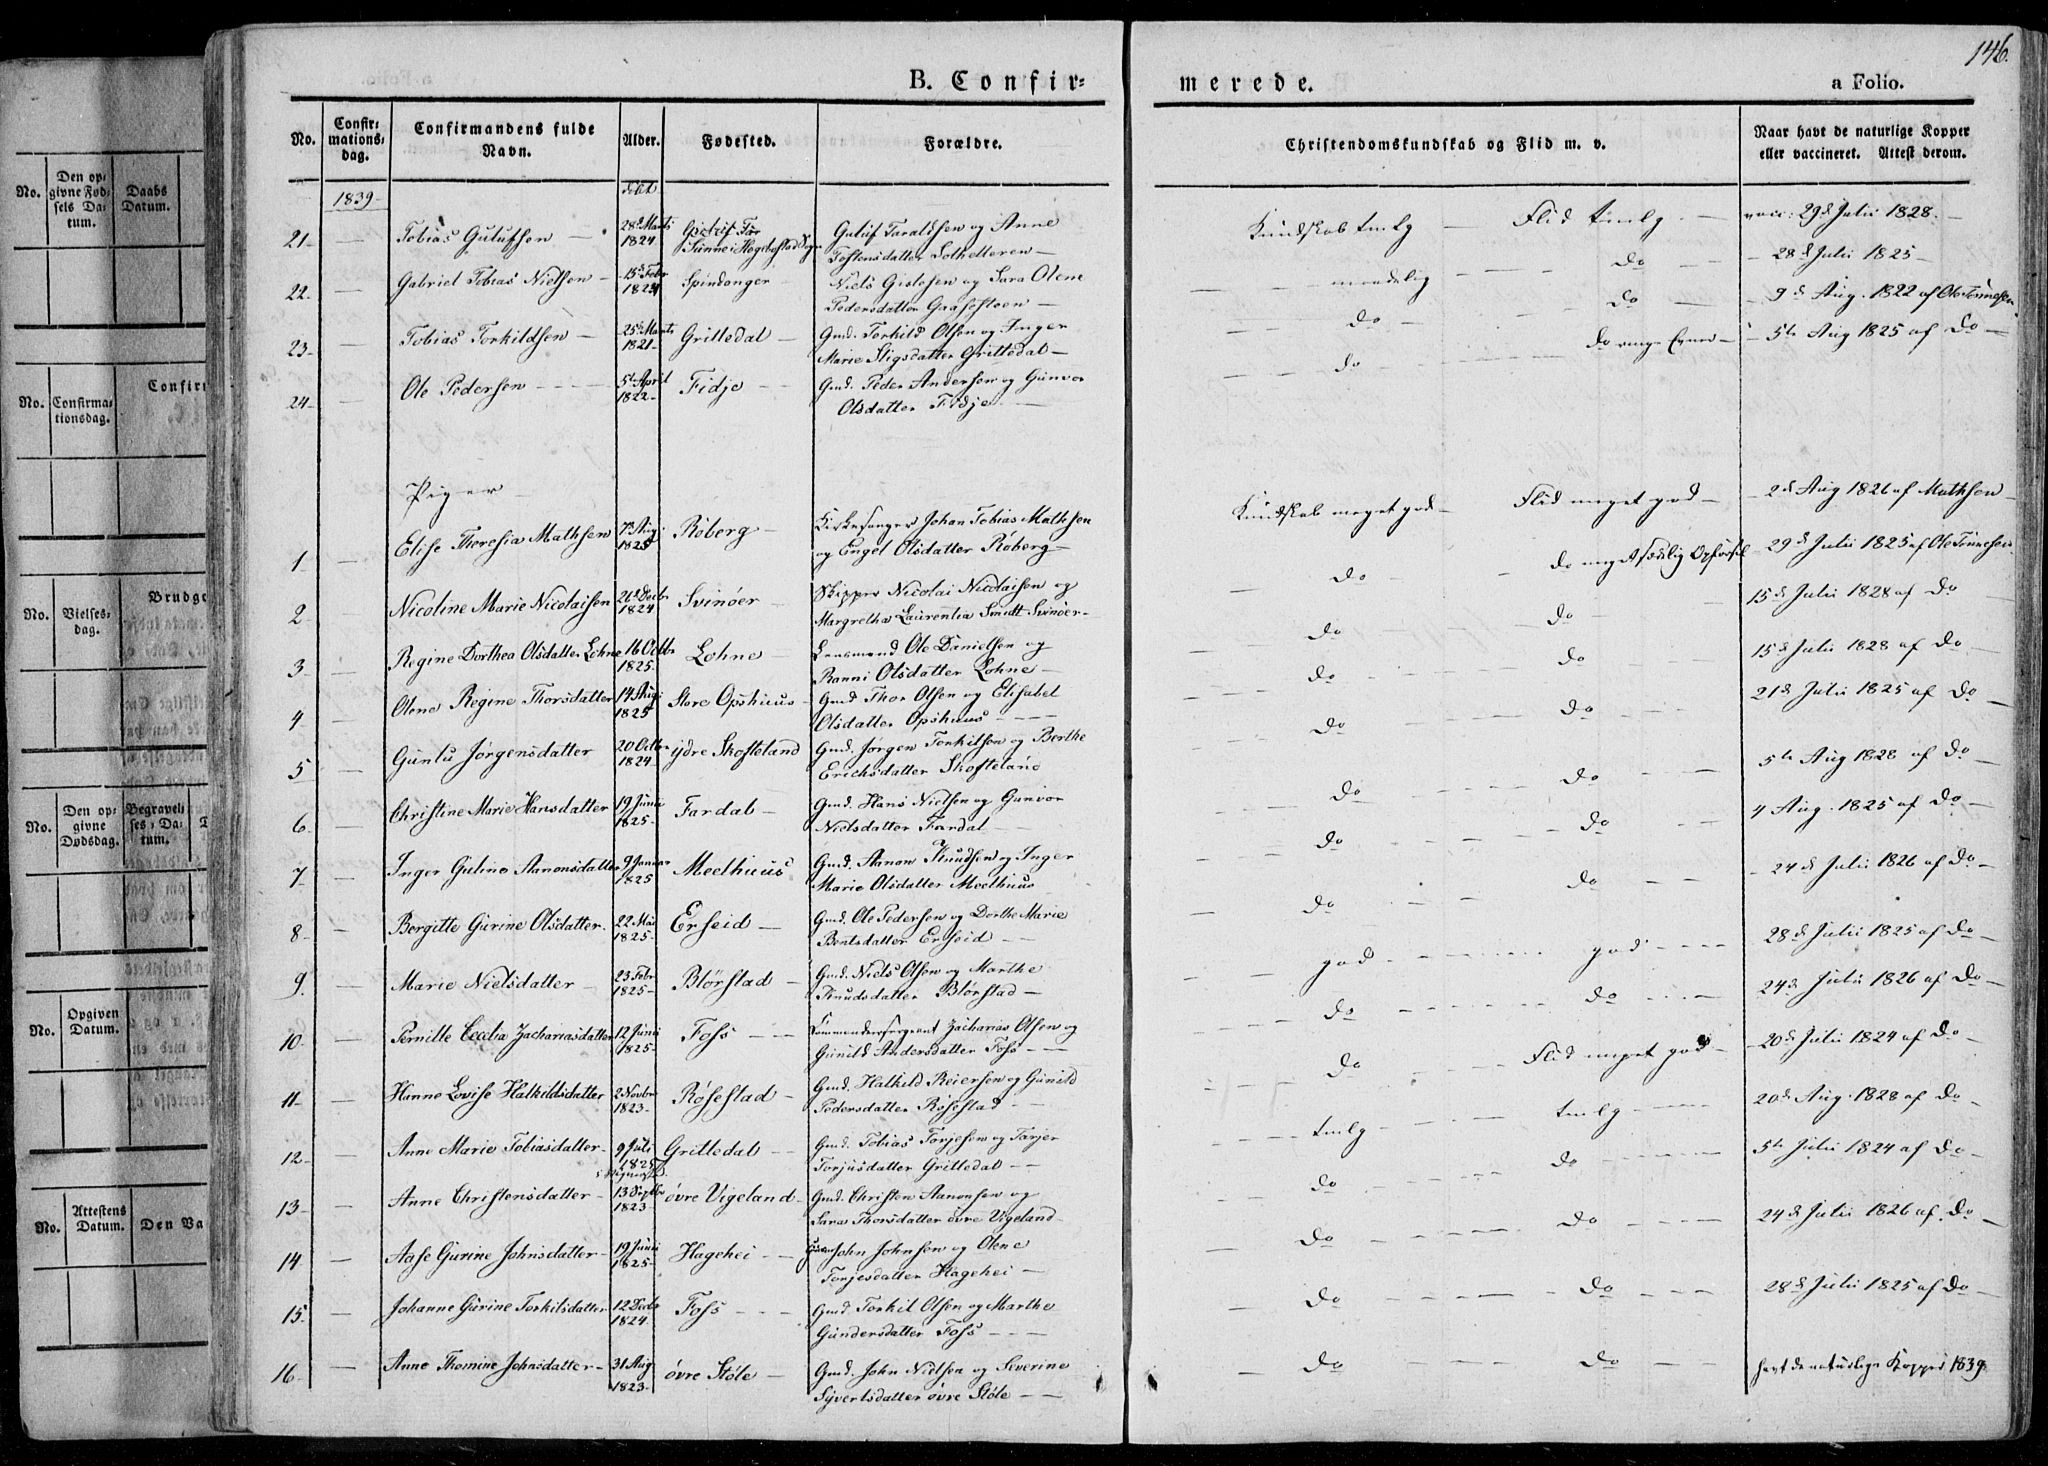 146.
B. Confirmerede.
a Folio.
No.
Confirmationsdag.
Confirmandens fulde Navn.
Alder.
Fødested.
Forældre.
Christendomskundskab og Flid m. v.
Naar havt de naturlige Kopper eller vaccineret. Attest derom.
1839
døbt
21 — Tobias Gulufsen — 28de Marts 1824 Guluf Taraldsen og Anne Kundskab tmlg — Flid tmlg — vacc: 29de Julii 1828
Tostensdatter
22 — Gabriel Tobias Nielsen — 15de Febr 1824 Spindanger — Niels Gislesen og Sara Olene — maadelig — do — 28de Julii 1825
Pedersdatter Graasteen
23 — Tobias Torkildsen — 25de Marts 1821 Grittedal — Gmd. Torkild Olsen og Inger — do — do — 9de Aug. 1822 af Ole Tønnesen
Marie Stigsdatter Grittedal
24 — Ole Pedersen — 5te April 1822 Fidje — Gmd. Peder Andersen og Gunvor — do — do ringe Evner — 5te Aug 1825 af do
Olsdatter Fidje
Piger
1 — Elise Theresia Mathsen 7de Aug 1825 Røberg — Kirkesanger Johan Tobias Mathsen Kundskab meget god — Flid meget god — 2de Aug 1826 af Mathsen
og Engel Olsdatter Røberg
2 — Nicoline Marie Nicolaisen 26de Decbr 1824 Svinøer — Skipper Nicolai Nicolaisen og — do — do meget sædelig Opførsel — 29de Julii 1825 af Ole Tønnesen
Margretha Laurentia Smidt Svinøer
3 — Regine Dorthea Olsdatter Lohne 16 Octbr 1825 Lohne — Lensmand Ole Danielsen og — do — do — 15de Julii 1828 af do
Ranni Olsdatter Lohne
4 — Olene Regine Thorsdatter 14 Aug 1825 Store Opshuus — Gmd Thor Olsen og Elisabet — do — do — 15de Julii 1828 af do
Olsdatter Opshuus
5 — Gunlu Jørgensdatter 20 Octbr 1824 ydre Skofteland Gmd. Jørgen Torkilsen og Berthe — do — do — 21de Julii 1825 af do
Erichsdatter Skofteland
6 — Christine Marie Hansdatter 19 Junii 1825 Fardal — Gmd. Hans Nielsen og Gunvor — do — do — 5te Aug 1828 af do
Nielsdatter Fardal
7 — Inger Guline Aanonsdatter 9 Januar 1825 Meelhuus Gmd. Aanon Knudsen og Inger — do — do — 4 Aug. 1825 af do
Marie Olsdatter Meelhuus
8 — Bergitte Gurine Olsdatter 22 Mai 1825 Erseid — Gmd. Ole Pedersen og Dorthe Marie — do — do — 24de Julii 1826 af do
Bentsdatter Erseid
9 — Marie Nielsdatter — 23 Febr 1825 Blørstad — Gmd. Niels Olsen og Marthe — god — god — 28de Julii 1825 af do
Knudsdatter Blørstad
10 — Pernille Cecelia Zachariasdatter 12 Junii 1825 Foss — Commandersergeant Zacharias Olsen og — do — do — 24de Julii 1826 af do
Gunild Andersdatter Foss
11 — Hanne Lovise Halkildsdatter 2 Novbr 1823 Røsestad — Gmd. Halkild Reiersen og Gunild — do — Flid meget god — 20de Julii 1824 af do
Pedersdatter Røsestad
12 — Anne Marie Tobiasdatter 9 Juli 1825 Grittedal — Gmd. Tobias Torjesen og Tarjer — tmlg — tmlg — 20de Aug. 1828 af do
Torjusdatter Grittedal
13 — Anne Christensdatter 13 Septbr 1823 øvre Vigeland — Gmd. Christen Aanonsen og — do — do — 5te Julii 1824 af do
Sara Thorsdatter øvre Vigeland
14 — Aase Gurine Johnsdatter 19 Junii 1825 Hagehei — John Johnsen og Olene — do — do — 24de Julii 1826 af do
Torjesdatter Hagehei
15 — Johanne Gurine Torkilsdatter 12 Decbr 1824 Foss — Gmd. Torkil Olsen og Marthe — do — do — 28de Julii 1825 af do
Gundersdatter Foss
16 — Anne Thomine Johnsdatter 31 Aug 1823 øvre Støle — Gmd. John Nielsen og Severine — do — do — havt de naturlige Kopper 1839
Syvertsdatter øvre Støle
No.
Den opgivne Fødsels Datum.
Daabs Datum.
No.
Confirmationsdag.
Confirm
No.
Vielsesdag.
Brudge
No.
Den opgivne Dødsdag.
Begravelses-Datum.
No.
Opgiven Datum.
No.
Attestens Datum.
Den Va